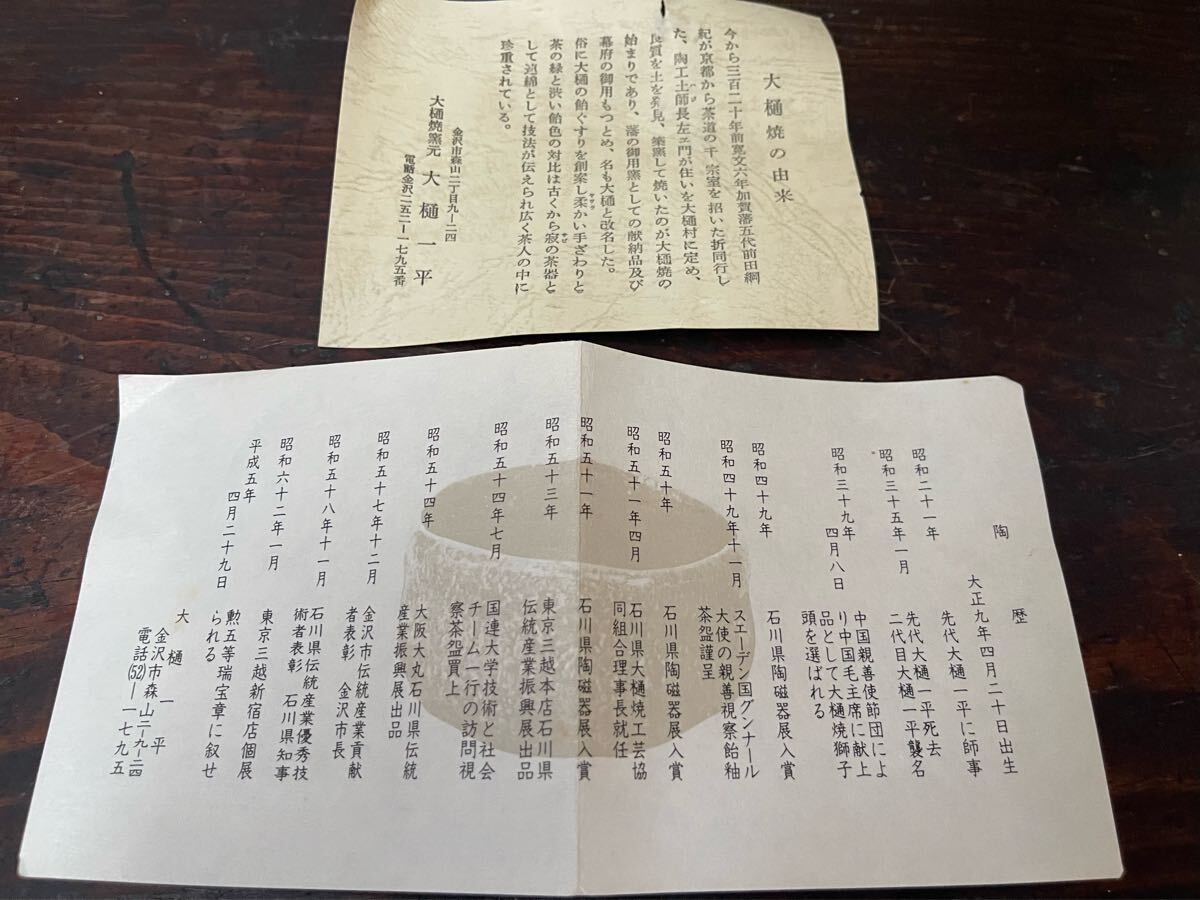 大樋焼の由来
今から三百二十年前寛文六年加賀藩五代前田綱
紀が京都から茶道の千 宗室を招いた折同行し
た、陶工土師長左ェ門が住いを大樋村に定め、
良質を土を発見、築窯して焼いたのが大樋焼の
始まりであり、藩の御用窯としての献納品及び
幕府の御用もつとめ、名も大樋と改名した。
俗に大樋の飴ぐすりを創案し柔かい手ざわりと
茶の緑と渋い飴色の対比は古くから寂の茶器と
して連綿として技法が伝えられ広く茶人の中に
珍重されている。
金沢市森山二丁目九ー二四
大樋焼窯元 大樋一平
電話金沢二五二ー一七九五番
陶歴
大正九年四月二十日出生
先代大樋一平に師事
昭和二十一年 先代大樋一平死去
昭和三十五年一月 二代目大樋一平襲名
昭和三十九年 中国親善使節団によ
四月八日 り中国毛主席に献上
品として大樋焼獅子
頭を選ばれる
昭和四十九年 石川県陶磁器展入賞
昭和四十九年十一月 スエーデン国グンナール
大使の親善視察飴釉
茶盌謹呈
昭和五十年 石川県陶磁器展入賞
昭和五十一年四月 石川県大樋焼工芸協
同組合理事長就任
昭和五十一年 石川県陶磁器展入賞
昭和五十三年 東京三越本店石川県
伝統産業振興展出品
昭和五十四年七月 国連大学技術と社会
チーム一行の訪問視
察茶盌買上
昭和五十四年 大阪大丸石川県伝統
産業振興展出品
昭和五十七年十二月 金沢市伝統産業貢献
者表彰 金沢市長
昭和五十八年十一月 石川県伝統産業優秀技
術者表彰 石川県知事
昭和六十二年一月 東京三越新宿店個展
平成五年 勲五等瑞宝章に叙せ
四月二十九日 られる
大樋一平
金沢市森山二ー九ー二四
電話(52)ー一七九五